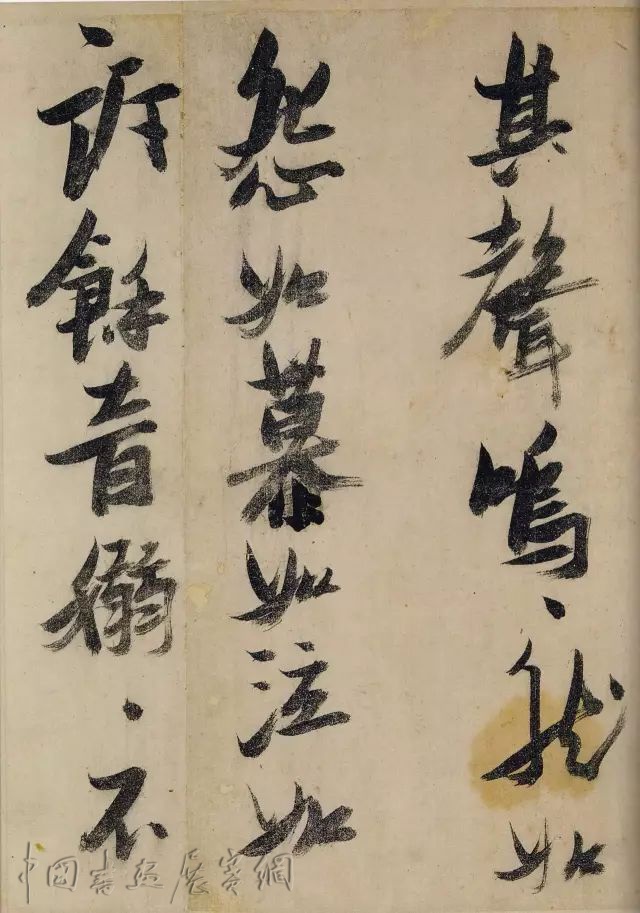 其聲嗚、然如
怨如慕如泣如
訴餘音嫋、不
中国書法展賽網